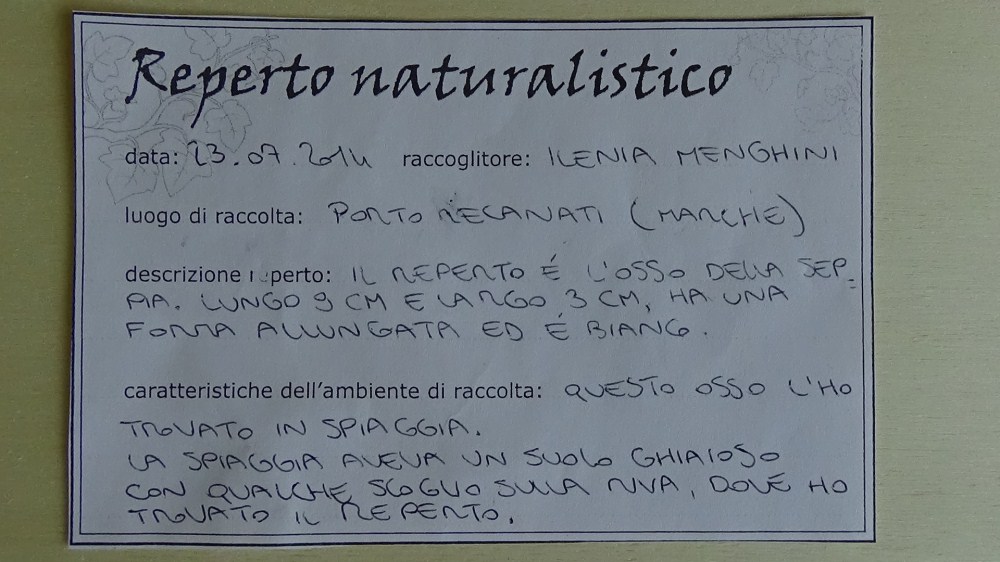 Reperto naturalistico
data: 23.07.2014 raccoglitore: ILENIA MENGHINI
luogo di raccolta: PORTO RECANATI (MARCHE)
descrizione reperto: IL REPERTO É L'OSSO DELLA SEP=
PIA. LUNGO 9 CM E LARGO 3 CM, HA UNA
FORMA ALLUNGATA ED É BIANCO.
caratteristiche dell'ambiente di raccolta: QUESTO OSSO L'HO
TROVATO IN SPIAGGIA.
LA SPIAGGIA AVEVA UN SUOLO GHIAIOSO
CON QUALCHE SCOGLIO SULLA RIVA, DOVE HO
TROVATO IL REPERTO.